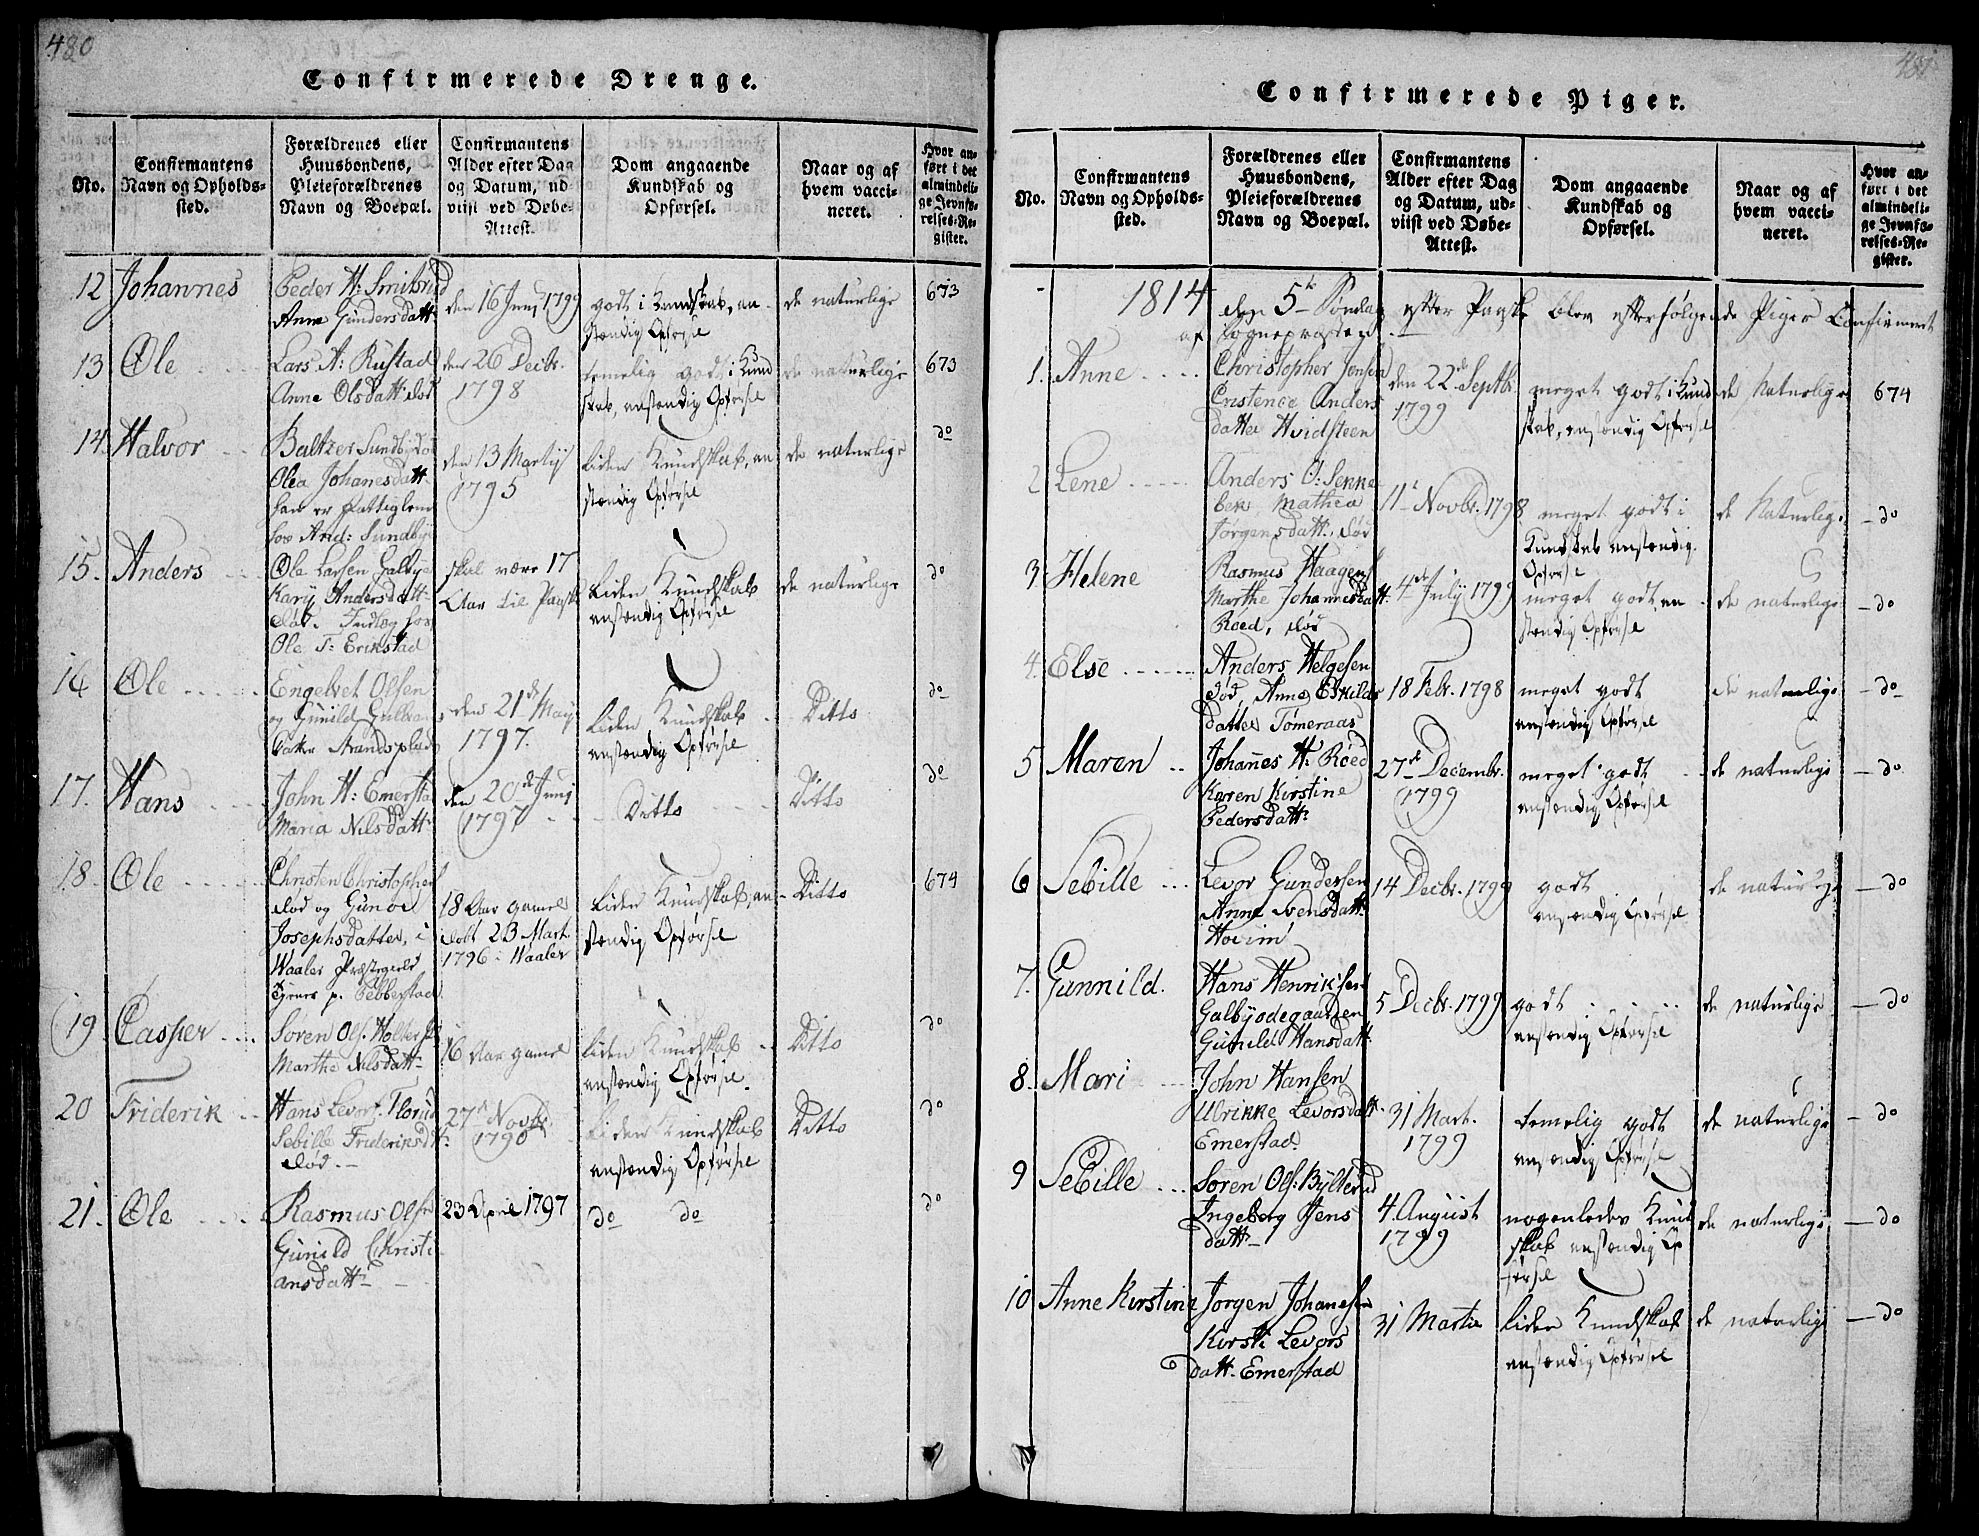 480
Confirmerede Drenge.
No.
Confirmantens
Navn og Opholds-
sted.
Forældrenes eller
Huusbondens,
Pleieforældrenes
Navn og Boepæl.
Confirmantens
Alder efter Dag
og Datum, ud-
viist ved Døbe-
Attest.
Dom angaaende
Kundskab og
Opførsel.
Naar og af
hvem vacci-
neret.
Hvor an-
ført i det
almindeli-
ge Jevnfø-
relses-Re-
gister.
12 Johannes
Peder H: Smibrud
Anne Gundersdatt
den 16 Junij 1799
godt i Kundskab, an-
stændig Opførsel
de naturlige
673
13 Ole
Lars A: Rustad
Anne Olsdatt død
den 26 Decbr.
1798
temelig godt i Kund
skab, anstændig Opførsel
de naturlige
673
14. Halvor
Baltzer Sundby død
Olea Johanesdatt
han er Fattiglem
hos And: Sundbye
den 13 Martij
1795
Liden Kundskab, an
stændig Opførsel
de naturlige
do
15. Anders
Ole Larsen Galbye
Karij Andersdatt
død.
Ole T: Erikstad
skal være 17
Aar til Paaske
Liden Kundskab
anstændig Opførsel
de naturlige
do
16 Ole
Engelbret Olsen
og Gunild
Strandsplads
den 21de Maij
1797.
Liden Kundskab
anstændig Opførsel
Ditto
do
17. Hans
John H: Emersta
Maria Nilsdatt
den 20de Junij
1797
Ditto
Ditto
do
18. Ole
Christen Christophers
død og Gunor
Josephsdatter, i
Waaler Præstegield
tjener p. Febberstad
18 Aar gamel
døbt 23 Mart.
1796 i Waaler
Liden Kundskab, an-
stændig Opførsel
Ditto
674
19 Casper
Søren Ols. Holter
Marthe Nilsdatt
16 Aar gamel
Liden Kundskab
anstændig Opførsel.
Ditto
do
20 Friderik
Hans Levors. Florud
Sebille Frideriksdt:
død.
27de Novbr.
1790
Liden Kundskab
anstændig Opførsel
Ditto
do
21. Ole
Rasmus Olsen
Gunild Christi
ansdatt
23 April 1797
do do
do
481
Confirmerede Piger.
No.
Confirmantens
Navn og Opholds-
sted.
Forældrenes eller
Huusbondens,
Pleieforældrenes
Navn og Boepæl.
Confirmantens
Alder efter Dag
og Datum, ud-
viist ved Døbe-
Attest.
Dom angaaende
Kundskab og
Opførsel.
Naar og af
hvem vacci-
neret.
Hvor an-
ført i det
almindeli-
ge Jevnfø-
relses-Re-
gister.
1814 den 5te Søndag efter Paaske blev efterfølgende Piger Confirmert
af Sognepræsten
1. Anne
Christopher Jensen
Cristence Anders
datter Hvidsteen
den 22de Septbr.
1799
meget godt i Kund
skab, anstændig Opførsel
de Naturlige
674
2 Lene
Anders O: Senke
bek Mathea
Jørgensdatt. død
11te Novbr. 1798
meget godt i
Kundskab anstændig
Opførsel
de Naturlige
do
3 Helene
Rasmus Haagens
Marthe Johannesdatt.
Roed, død
4de Julij 1799
meget godt, an
stændig Opførsel
de naturlige
do
4. Else
Anders Helgesen
død, Anne Eskilds
datter Tømeraas
18 Febr. 1798
meget godt
anstændig Opførsel
de naturlige
do
5 Maren
Johanes H. Röed
Karen Kirstine
Pedersdatt:
27de Decembr.
1799
meget godt
anstændig Opførsel
de naturlige
do
6 Sebille
Levor Gundersen
Anne Svensdatt:
Hoeim
14 Decbr. 1799
godt
anstændig Opførsel
de naturlige
do
7. Gunnild.
Hans Henriksen
Galbyødegaarden
Gunild Hansdatt
5 Decbr. 1799
godt
anstændig Opførsel
de naturlige
do
8. Mari
John Hansen
Ulrikke Levorsdatt
Emerstad.
31 Mart.
1799
temelig godt
anstændig Opførsel
de naturlige
do
9 Sebille
Søren Ols: Bylterud
Ingeborg Jens
datt
4. August
1799
nogenledes Kund
skab anstændig Op
førsel
de naturlige
do
10 Anne Kirstine
Jorgen Johanesen
Kirsti Levors
datt. Emerstad
31 Martii
Liden Kundskab
anstændig Opførsel
de naturlige
do